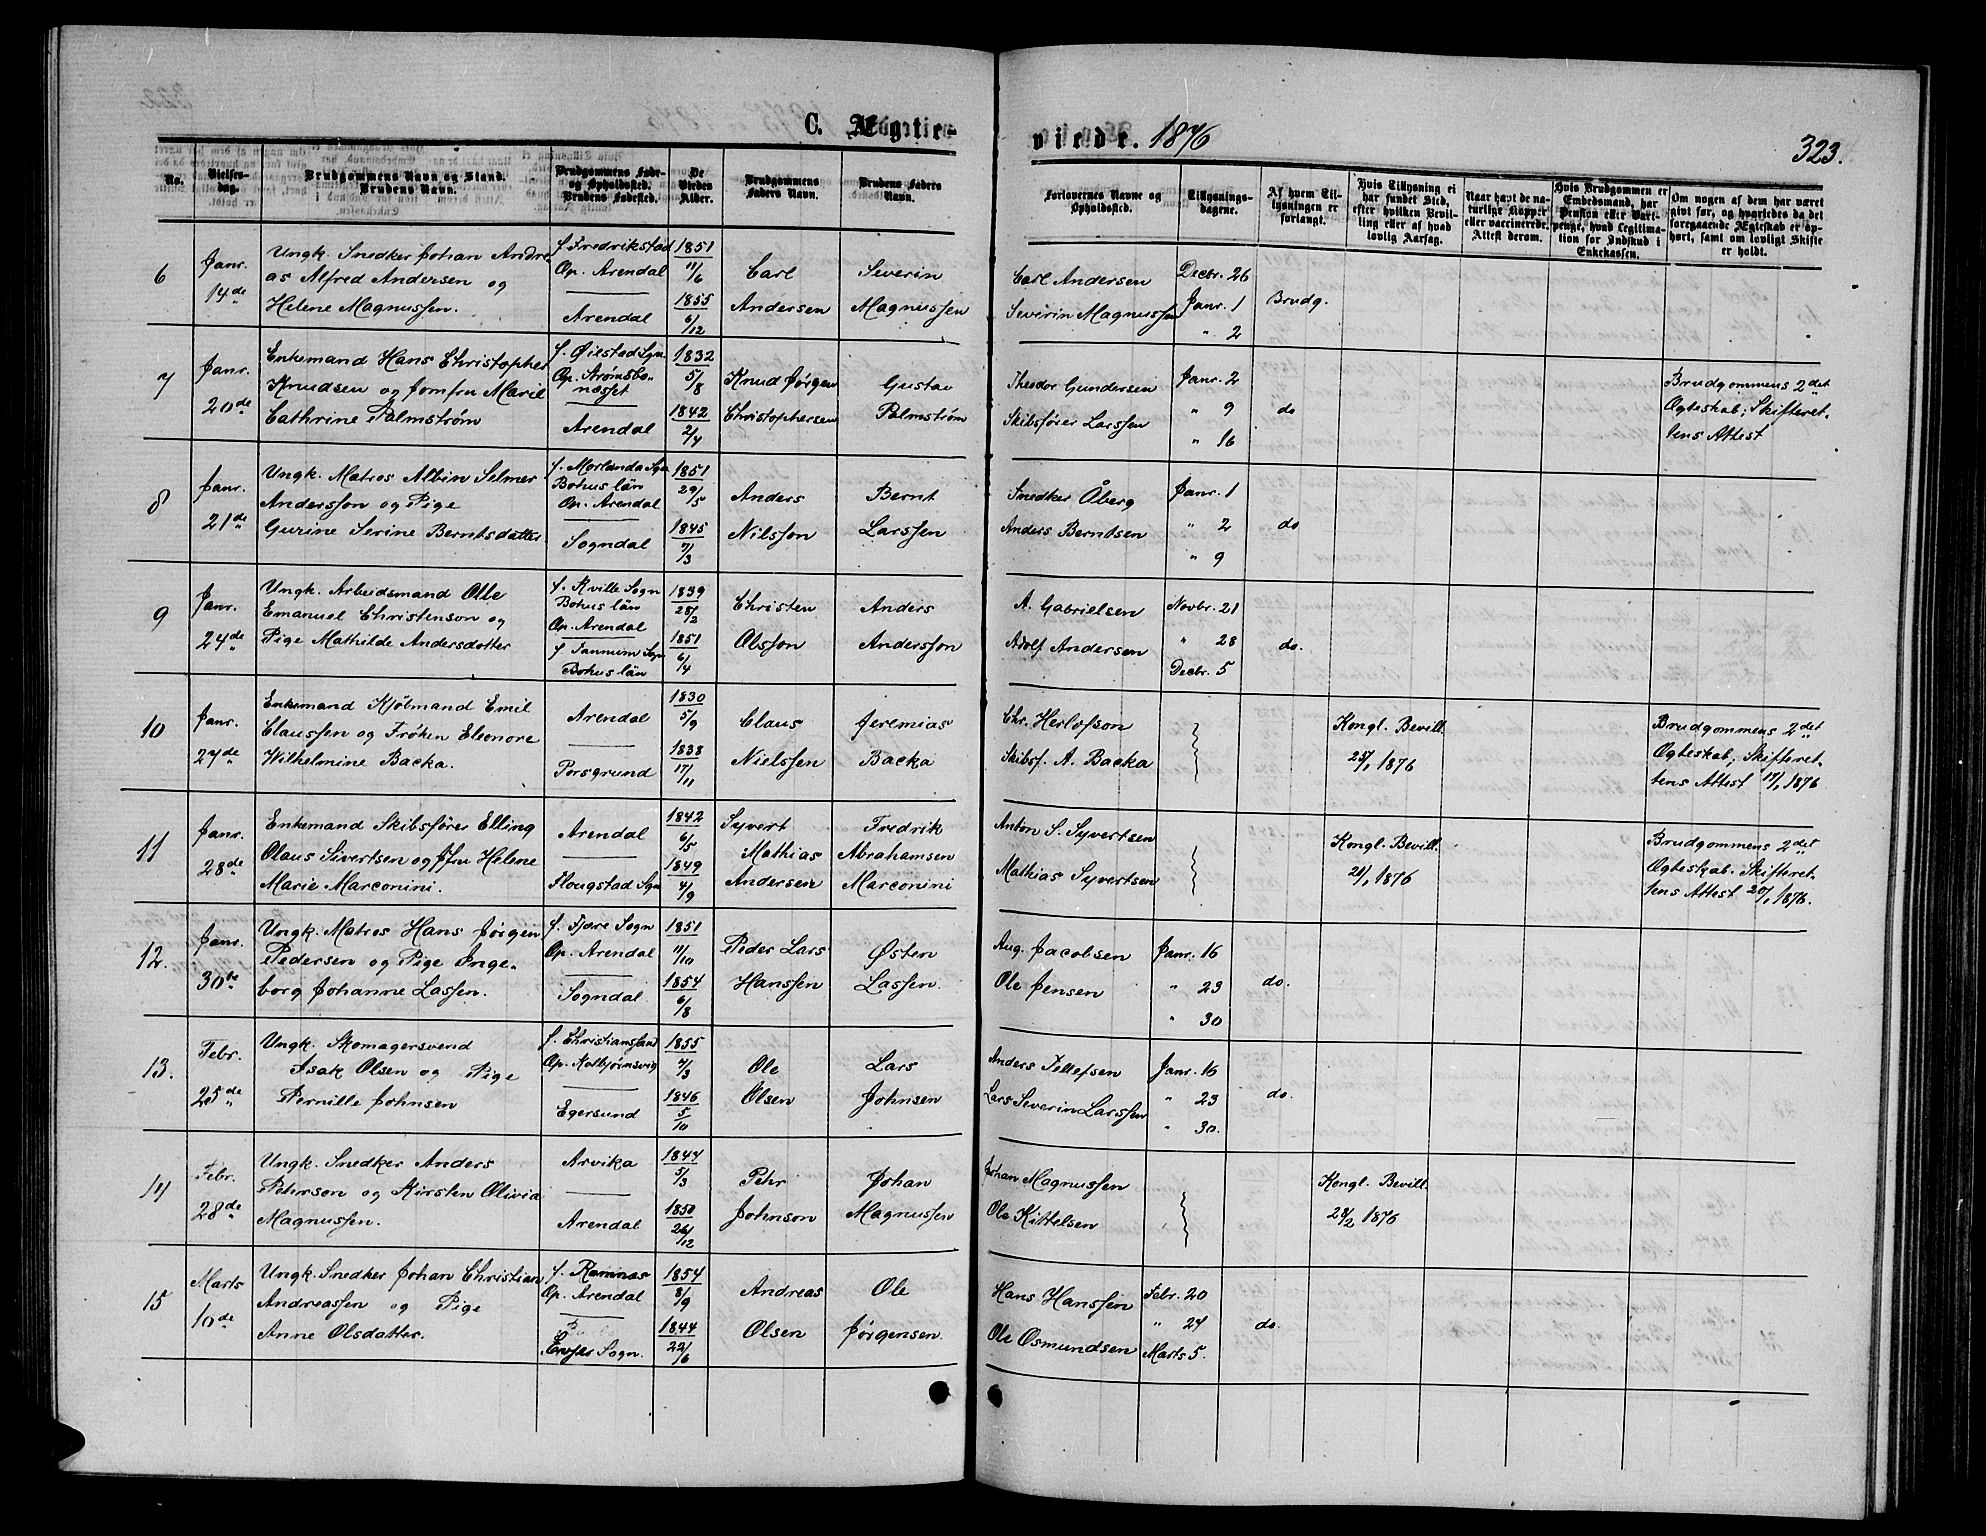 C. Ægtevie-
viede. 1876
323.
No.
Vielses-
dag.
Brudgommens Navn og Stand.
Brudens Navn.
Brudgommens Føde-
og Opholdssted.
Brudens Fødested.
De
Viedes
Alder.
Brudgommens
Faders Navn.
Brudens Faders
Navn.
Forlovernes Navne og
Opholdssted.
Tillysnings-
dagene.
Af hvem Til-
lysningen er
forlangt.
Hvis Tillysning ei
har fundet Sted,
efter hvilken Bevil-
ling eller af hvad
lovlig Aarsag.
Naar havt de na-
turlige Kopper
eller vaccinerede.
Attest derom.
Hvis Brudgommen er
Embedsmand, har
Pension eller Vart-
penge, hvad Legitima-
tion for Indskud i
Enkekassen.
Om nogen af dem har været
givt før, og hvorledes da det
foregaaende Ægteskab er op-
hørt, samt om lovligt Skifte
er holdt.
6
Janr.
14de
Ungk. Snedker Johan Andre-
as Alfred Andersen og
Helene Magnussen.
f. Fredrikstad
Op. Arendal
Arendal
1851
11/6
1855
6/12
Carl
Andersen
Severin
Magnussen
Carl Andersen
Severin Magnussen
Decbr. 26
Janr. 1
" 2
Brudg.
7
Janr.
20de
Enkemand Hans Christopher
Knudsen og Jomfru Marie
Cathrine Palmstrøm
f. Øiestad Sgn
Op. Strømsbo-
næsset
Arendal
1832
5/8
1842
2/4
Knud Jørgen
Christophersen
Gustav
Palmstrøm
Theodor Gundersen
Skibsfører Larssen
Janr. 2
" 9
" 16
do
Brudgommens 2det
Ægteskab; Skifteret-
tens Attest
8
Janr.
21de
Ungk. Matros Albin Selmer
Andersson og Pige
Gurine Serine Berntsdatter
f. Morlanda Sgn
Bohus län
Op. Arendal
Sogndal
1851
29/5
1845
7/3
Anders
Nilsson
Bernt
Larssen
Snedker Åberg
Anders Berntsen
Janr. 1
" 2
" 9
do
9
Janr.
24de
Ungk. Arbeidsmand Olle
Emanuel Christenson og
Pige Mathilde Andersdotter
f. Kville Sogn
Bohus län
Op. Arendal
f. Tannum Sgn
Bohus län
1839
25/2
1851
6/4
Christen
Olsson
Anders
Andersson
A. Gabrielsen
Adolf Andersen
Novbr. 21
" 28
Decbr. 5
do.
10
Janr.
27de
Enkemand Kjøbmand Emil
Claussen og Frøken Eleonore
Wilhelmine Backa.
Arendal
Porsgrund
1830
5/9
1838
17/11
Claus
Nielssen
Jeremias
Backa
Chr. Herlofson
Skibsf. A. Backa
Kongl. Bevill.
25/1 1876
Brudgommens 2det
Ægteskab; Skifteret-
tens Attest 17/1 1876
11
Janr.
28de
Enkemand Skibsfører Elling
Olaus Sivertsen og Jfru Helene
Marie Marconini.
Arendal
Flougstad Sgn
1842
6/5
1849
4/9
Syvert
Mathias
Andersen
Fredrik
Abrahamsen
Marconini
Anton S. Syvertsen
Mathias Syvertsen
Kongl. Bevill.
21/1 1876
Brudgommens 2det
Ægteskab. Skifteret-
tens Attest 20/1 1876.
12.
Janr.
30te
Ungk. Matros Hans Jørgen
Pedersen og Pige Inge-
borg Johanne Lassen.
f. Fjære Sogn
Op. Arendal
Sogndal
1851
11/10
1854
6/8
Peder Lars
Hanssen
Østen
Lassen.
Aug. Jacobsen
Ole Jensen
Janr. 16
" 23
" 30
do.
13.
Febr.
25de
Ungk. Skomagersvend
Isak Olsen og Pige
Pernille Johnsen
f. Christianssand
Op. Kolbjørnsvig
Egersund
1855
7/3
1846
5/10
Ole
Olsen
Lars
Johnsen
Anders Tellefsen
Lars Severin Larssen
Janr. 16
" 23
" 30.
do.
14
Febr.
28de
Ungk. Snedker Anders
Pehrson og Kirsten Olivia
Magnussen.
Arvika
Arendal
1844
5/3
1850
26/12
Pehr
Johnson
Johan
Magnussen
Johan Magnussen
Ole Kittelsen
Kongl. Bevill.
28/2 1876
15
Marts
10de
Ungk. Snedker Johan Christian
Andreassen og Pige
Anne Olsdatter.
f. Ramnæs
Op. Arendal
Sogn.
1854
8/9
1844
22/6
Andreas
Olsen
Ole
Jørgensen
Hans Hanssen
Ole Osmundsen
Febr. 20
" 24
Marts 5.
do.